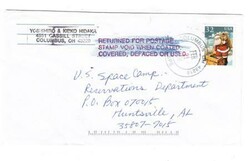 YOSHIHRO & REIKO HIDAKA
COLUMBUS, OH
RETURNED FOR POSTAGE
STAMP VOID WHEN COATED,
COVERED, DEFACED OR USED.
U.S. Space Camp
Reservations Department
P.O. Box 07015
Huntsville, AL
35807-7015